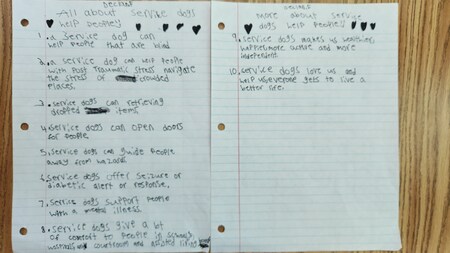 All about service dogs
help people?
1. a service dog can
help people that are blind
2. a service dog can help people
with Post Traumatic stress navigate
the stress of crowded
places.
3. service dogs can retrieving
dropped items
4. service dogs can open doors
for people
5. service dogs can guide people
away from hazard
6. service dogs offer seizure or
diabetic alert or response,
7. service dogs support people
with a mental illness
8. service dogs give a lot
of comfort to people in schools,
and courtroom and assisted
more about service
dogs help people?
9. service dogs makes us
more and more
independent.
10. service dogs love us and
help everyone gets to live a
better life.